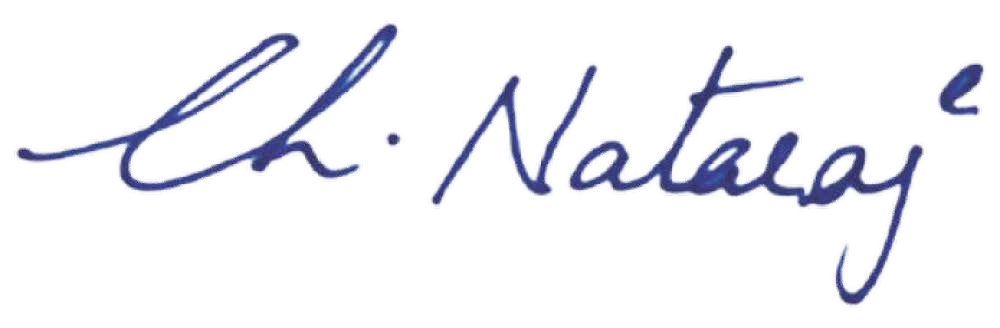 Ch. Nataraj